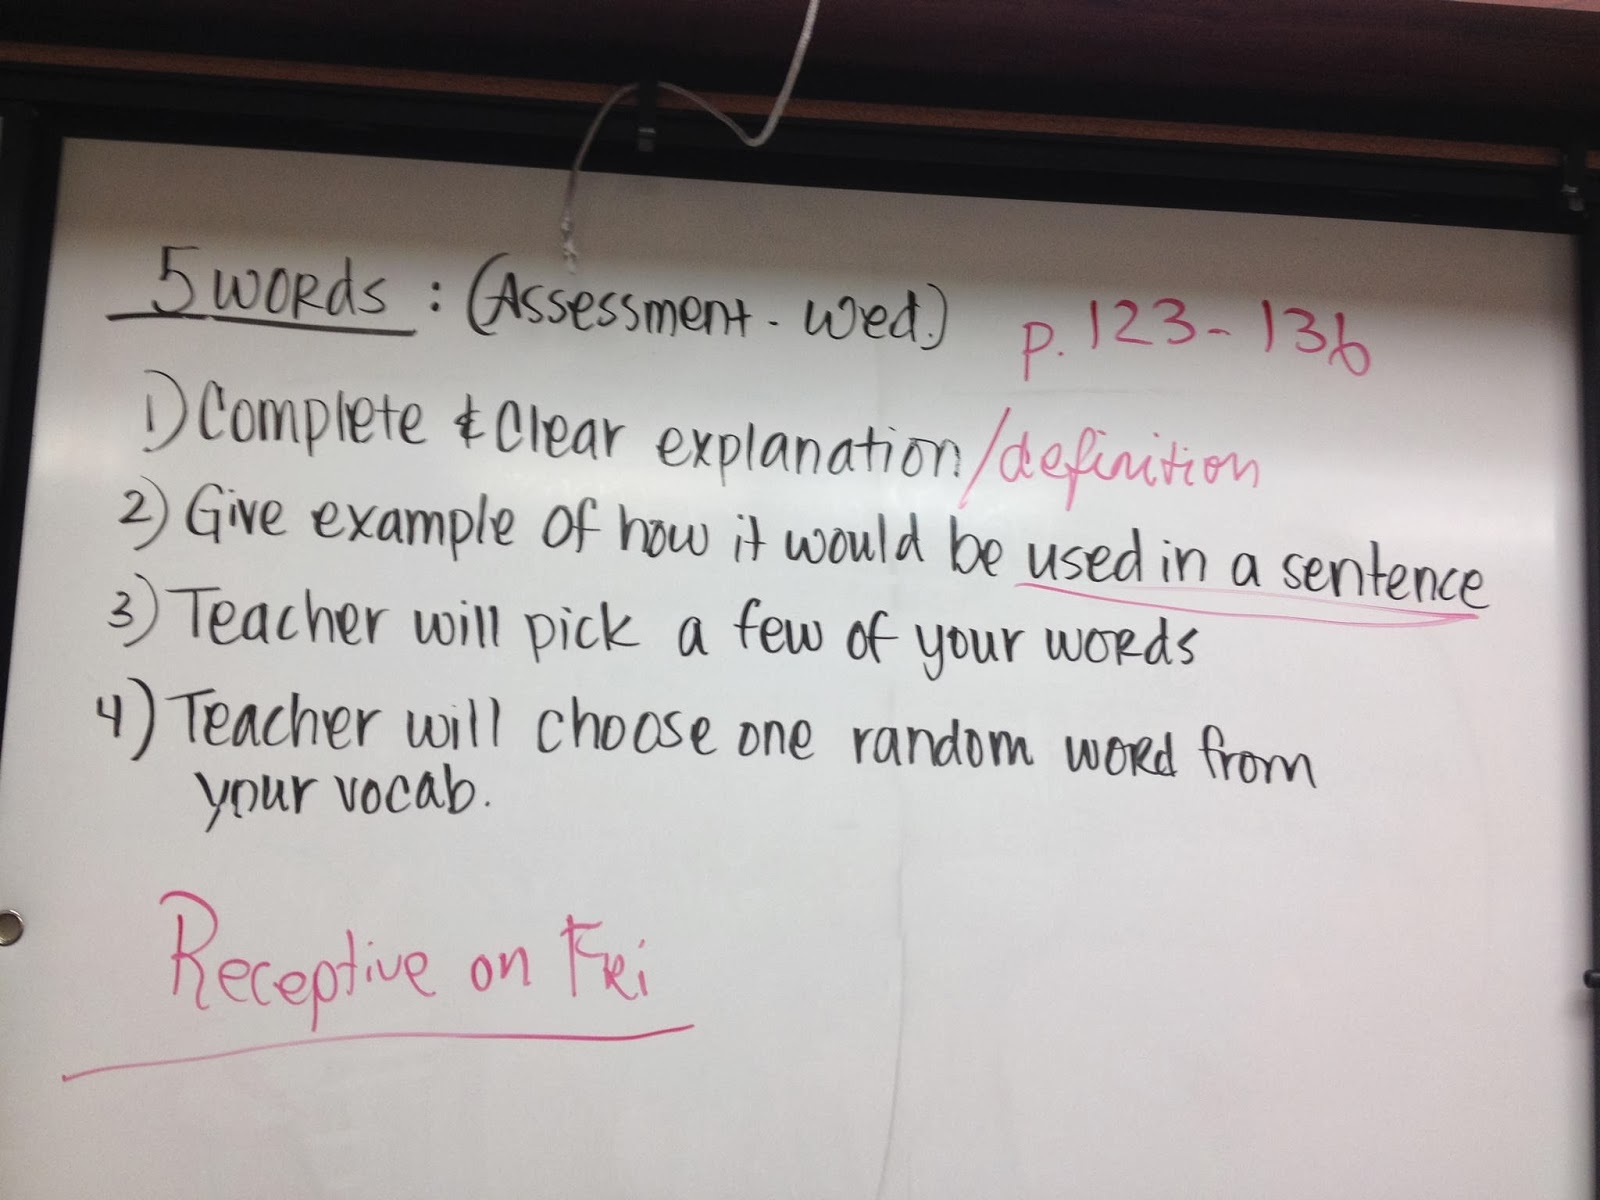 5 words : (Assessment - Wed.) p. 123 - 136
1) Complete & Clear explanation/definition
2) Give example of how it would be used in a sentence
3) Teacher will pick a few of your words
4) Teacher will choose one random word from
your vocab.
Receptive on Fri